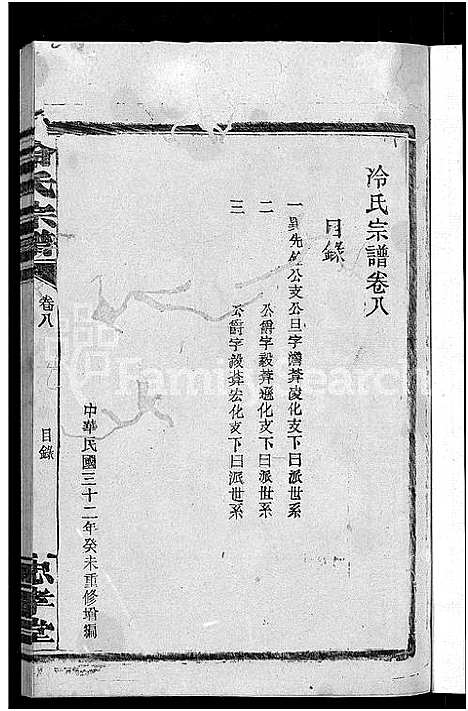 冷氏宗譜卷八
目錄
一 先 公支公旦字 凌化支下曰派世系
二 公爵字毅葬遜化支下曰派世系
三 公爵字毅葬宏化支下曰派世系
中華民國三十二年癸未重修增編
冷氏宗譜
卷八
目錄
忠孝堂